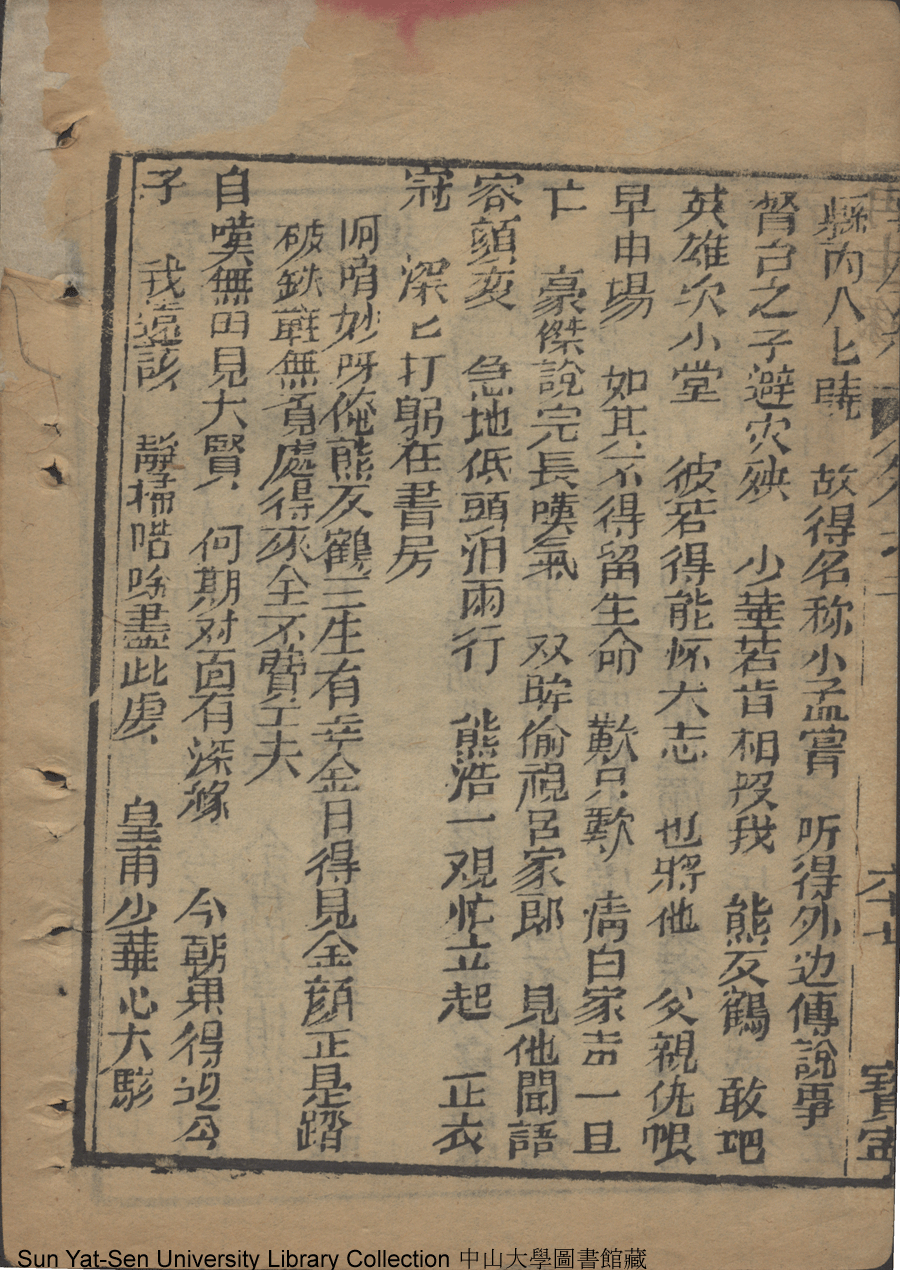 六十七
寶
縣內人匕曉 故得名称小孟嘗 听得外边傳說事
督台之子避灾殃 少華若肯相投我 熊友鶴 敢把
英雄次小堂 彼若得能怀大志 也將他 父親仇恨
早申場 如其公不得留生命 歎只歎 清白家声一旦
亡 豪傑說完長嘆氣 双眸偷視呂家郎 見他聞語
容頭変 急地低頭泪雨行 熊浩一观忙立起 正衣
冠 深匕打躬在書房
呵唷妙呀俺熊友鶴三生有幸今日得見金顔正是踏
破鉄鞋無覓處得來全不費工夫
自嘆無由見大賢 何期对面有深緣 今朝果得迎公
子 我這該 靜掃堦除盡此虔 皇甫少華心大駭
Sun Yat-Sen University Library Collection 中山大學圖書館藏